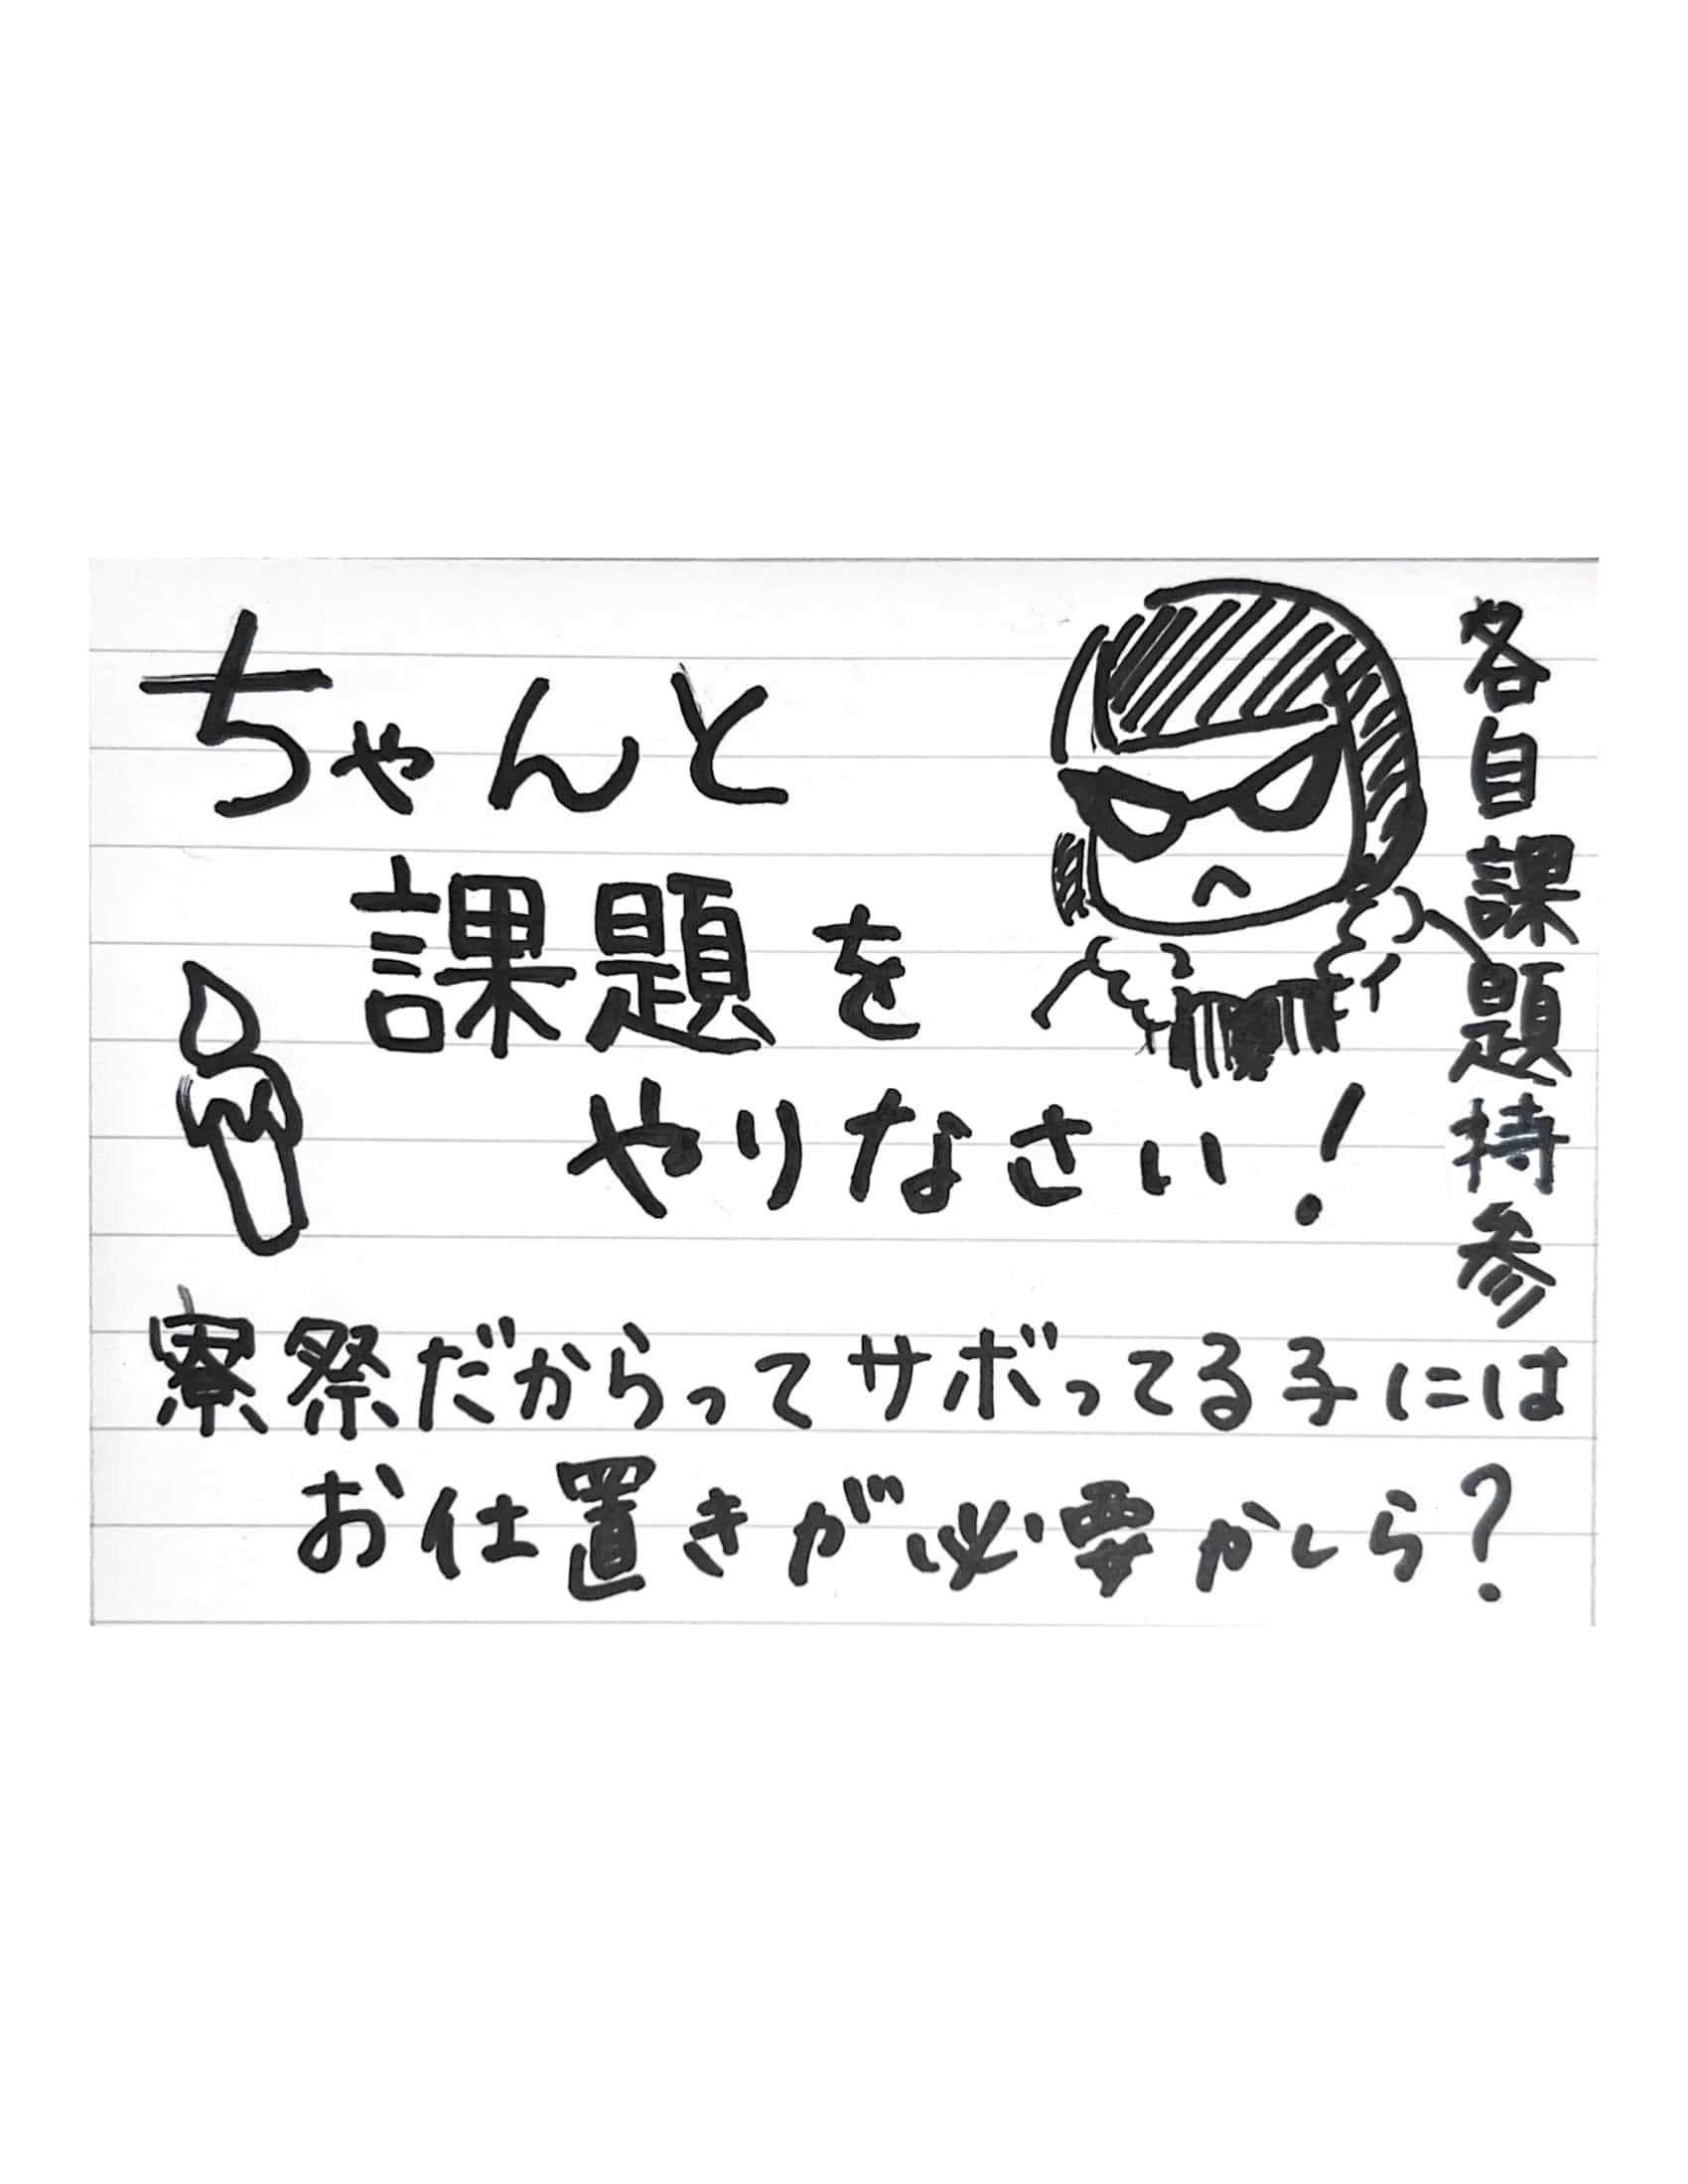 ちゃんと
課題を
やりなさい!
各自課題持参
寮祭だからってサボってる子には
お仕置きが必要かしら?